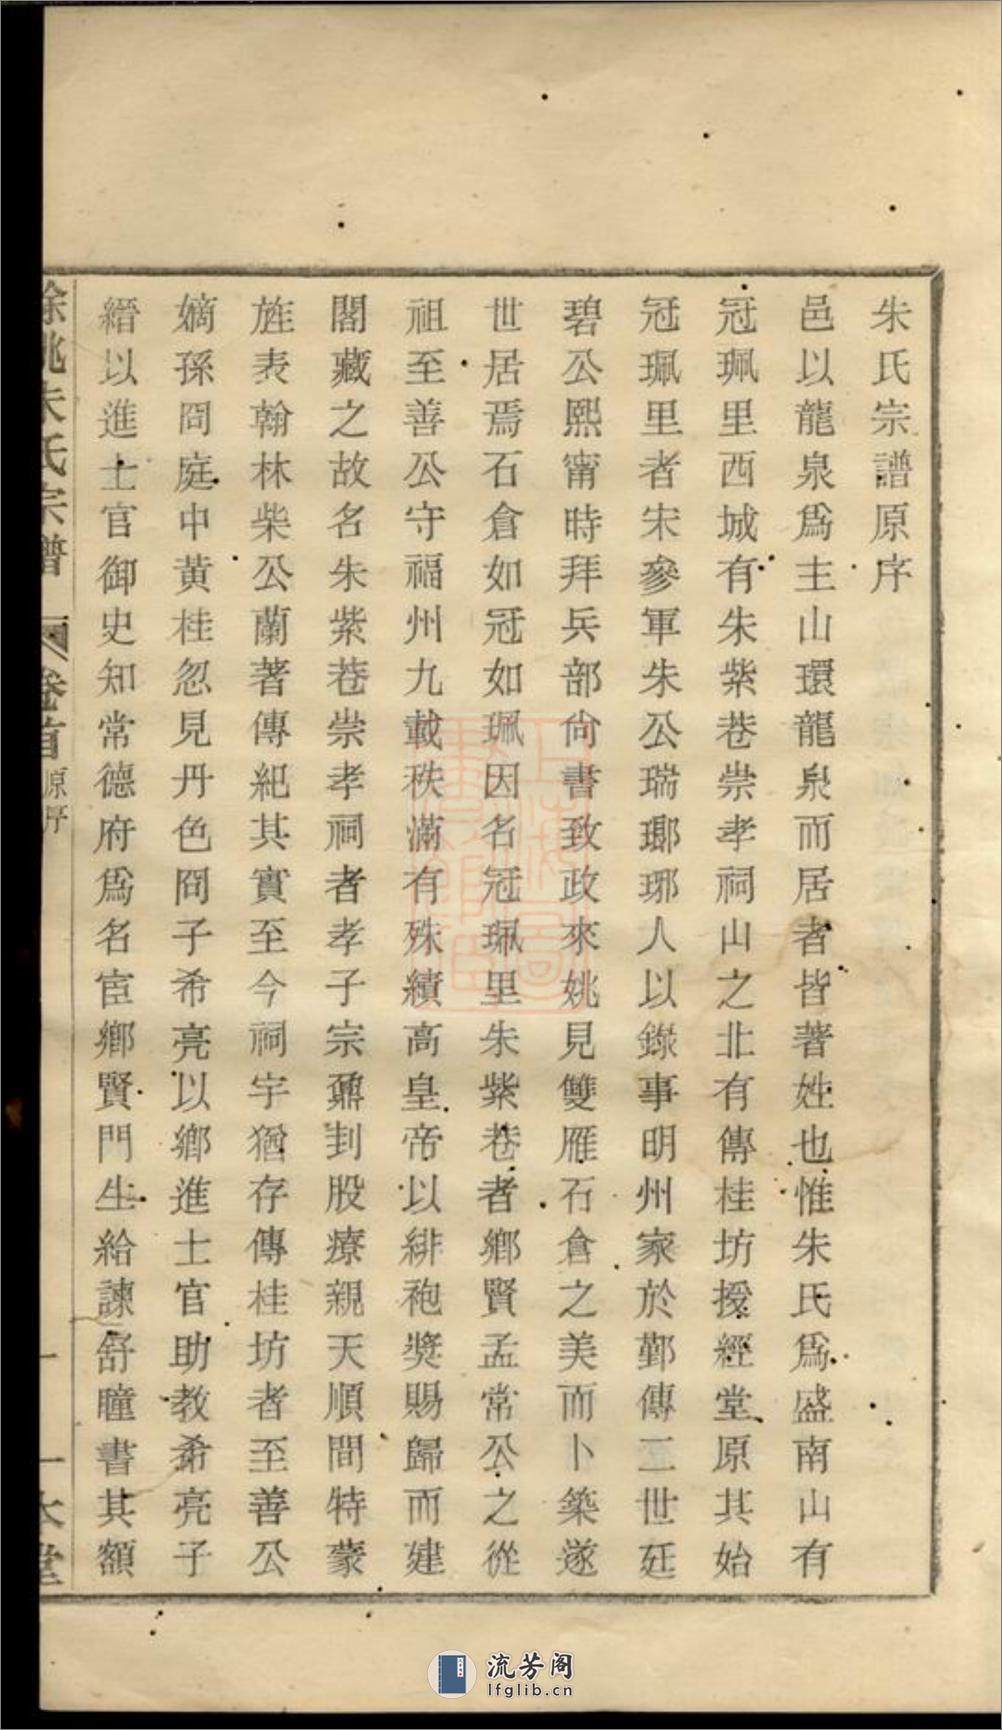 朱氏宗譜原序
邑以龍泉爲主山環龍泉而居者皆著姓也惟朱氏爲盛南山有
冠珮里西城有朱紫巷崇孝祠山之北有傳桂坊授經堂原其始
冠珮里者宋參軍朱公瑞瑯琊人以錄事明州家於鄞傳二世廷
碧公熙甯時拜兵部尙書致政來姚見雙雁石倉之美而卜築遂
世居焉石倉如冠如珮因名冠珮里朱紫巷者鄕賢孟常公之從
祖至善公守福州九載秩滿有殊績高皇帝以緋袍奬賜歸而建
閣藏之故名朱紫巷崇孝祠者孝子宗鼐刲股療親天順間特蒙
旌表翰林柴公蘭著傳紀其實至今祠宇猶存傳桂坊者至善公
嫡孫冏庭中黃桂忽見丹色冏子希亮以鄕進士官助敎希亮子
縉以進士官御史知常德府爲名宦鄕賢門生給諫舒瞳書其額
餘姚朱氏宗譜 卷首 原序 一 一本堂
流芳阁
lfglib.cn